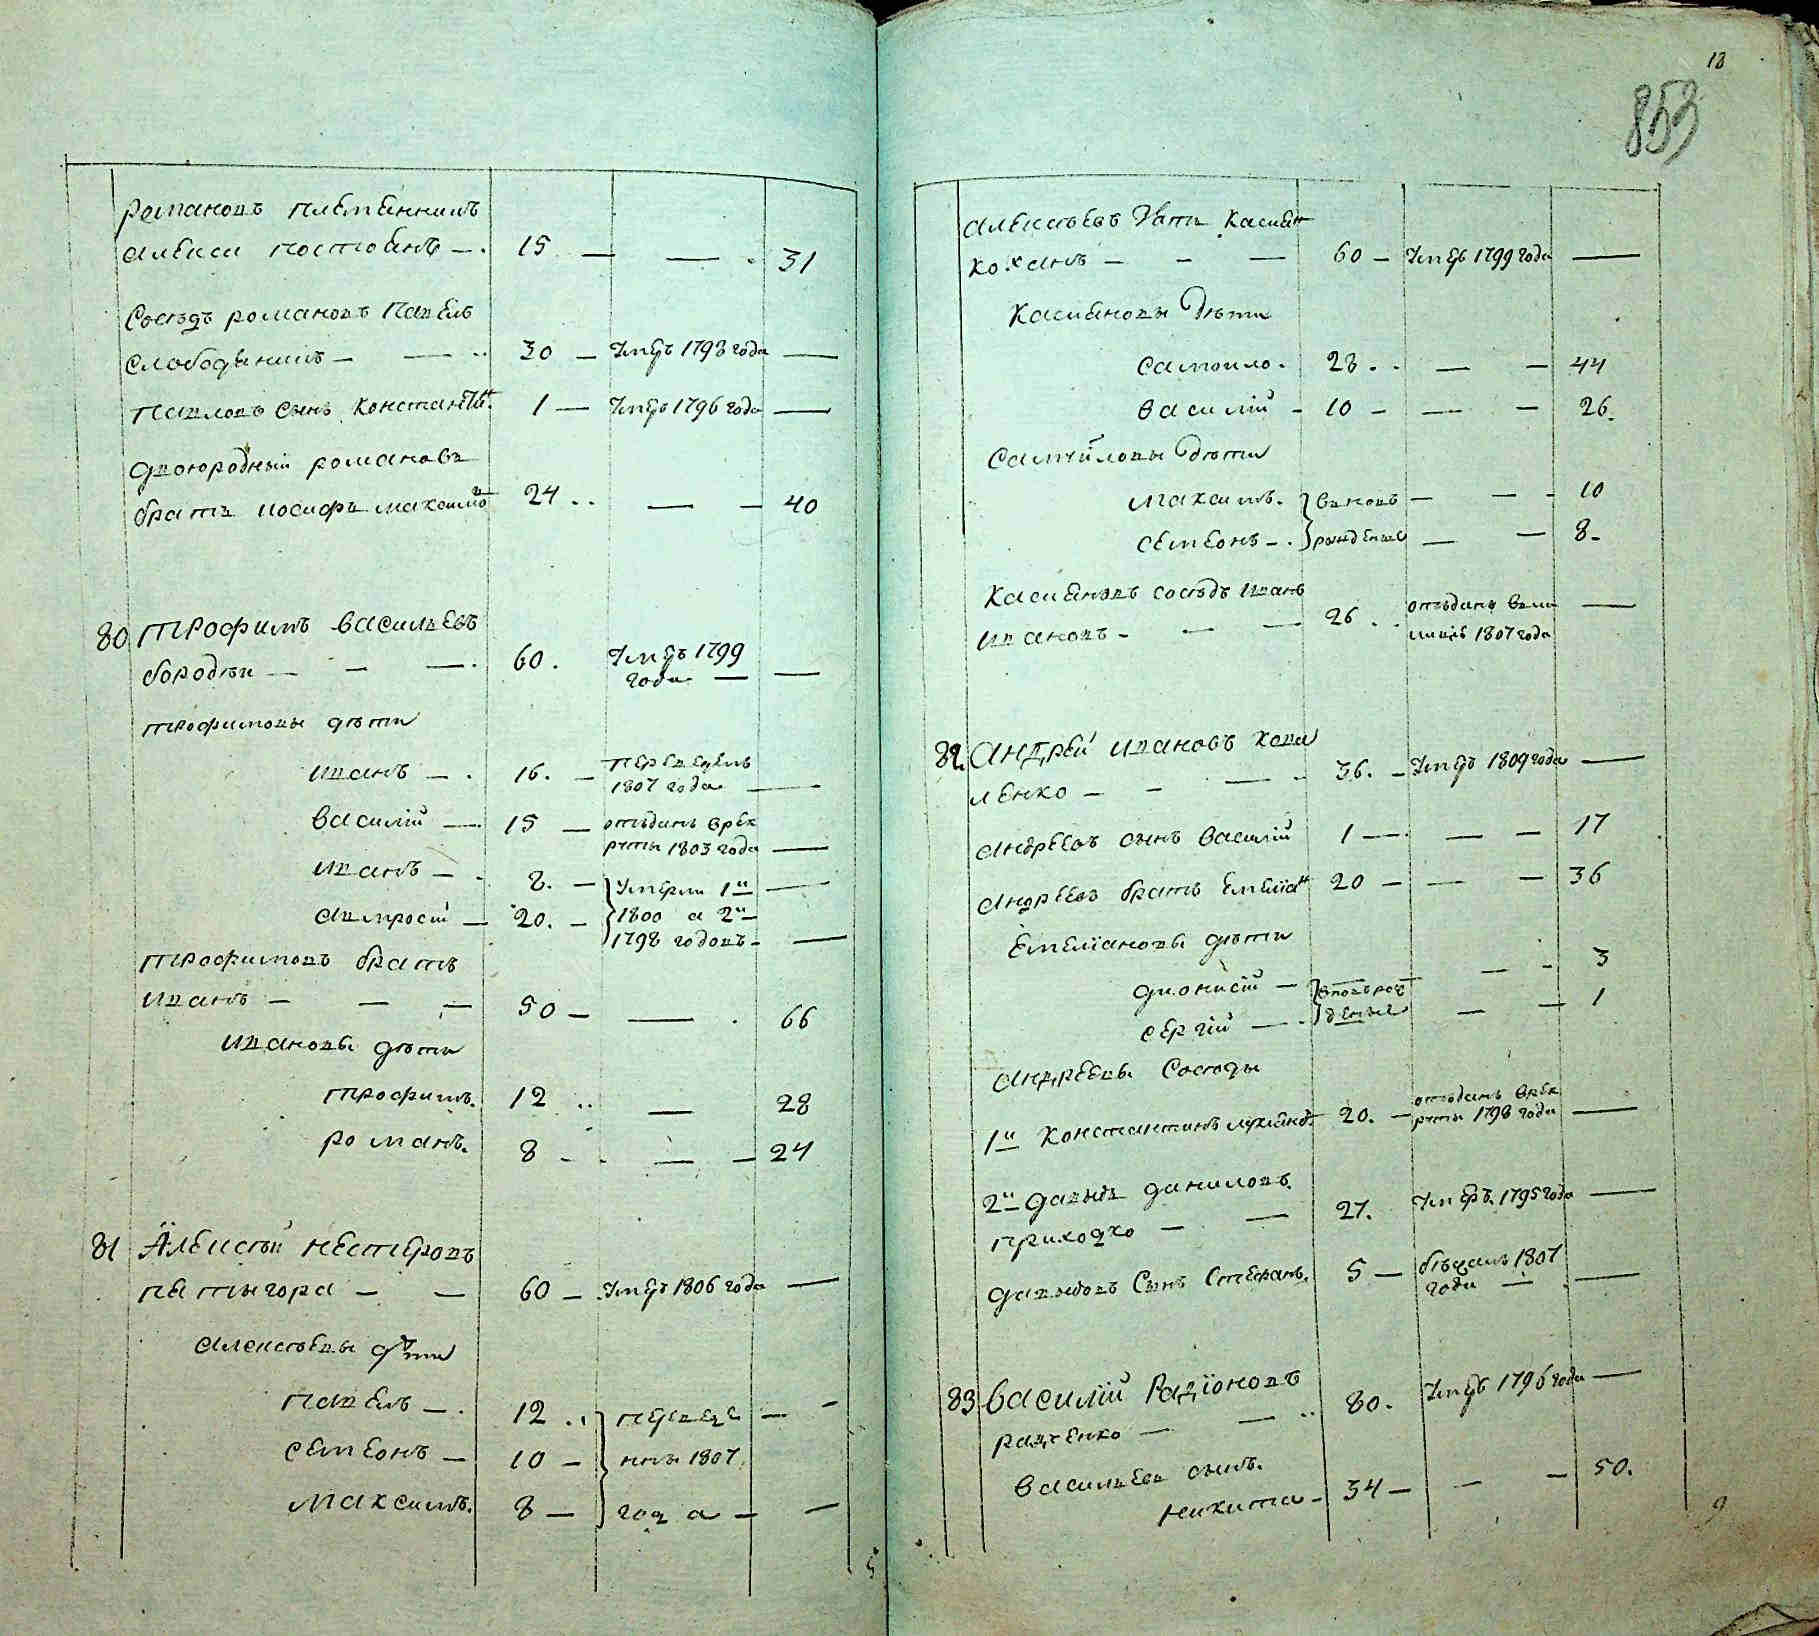 романовъ племянникъ
алексей постоянъ — . 15 — — . 31
Соседъ романовъ Павелъ
слободяникъ — — .. 30 — Умеръ 1798 года —
павловъ сынъ константинъ 1 — Умеръ 1796 года —
двоюродный романовъ
братъ иосифъ максимовъ 24 .. — — 40
80 трофимъ васильевъ
бородѣй — — — . 60 . Умеръ 1799
года — —
трофимовы дѣти
иванъ — . 16. — переведенъ
1807 года —
василій — 15 — отъданъ врек
руты 1803 года —
иванъ — . 2. — Умерли 1й —
амвросій — 20. — 1800 а 2й
1798 годовъ — —
трофимовъ братъ
иванъ — — — 50 — — . 66
ивановы дѣти
трофимъ. 12 .. — 28
романъ. 8 - . — — 24
81 Алексѣй нестеровъ
пятигора — — 60 — Умеръ 1806 года —
алексѣевы дѣти
павелъ — . 12 .. переведе — -
семенъ — 10 — ны 1807
максимъ. 8 — года — —
18
853
алексѣевъ зять касиян
коханъ — - — 60 — Умеръ 1799 года —
касияновы дѣти
самоило. 28 . . — — 44
василій - 10 - — — 26.
самойловы дѣти
максимъ. вновь — - - 10
семенъ — . рожденые — — 8-
касияновъ соседъ иванъ
ивановъ - — — 26 . . отъданъ
1807 года —
82. андрей ивановъ кова
ленко — - — .. 36. — Умеръ 1809 года —
андреевъ сынъ василій 1 — . — — 17
андреевъ братъ емелианъ 20 — — — 36
емелиановы дѣти
дионисій — вновь рож — - 3
сергій — . деные — — 1
андреевы соседы
1й константинъ 20. — отъданъ врек
руты 1798 года —
2й давыдъ даниловъ
приходко — — 27. Умеръ 1795 года —
давыдовъ Сынъ Стефанъ. 5 — бѣжалъ 1807
года — . —
83 василий Радионовъ
радченко — — .. 80. Умеръ 1796 года —
васильевъ сынъ
никита — 34 — — — 50.